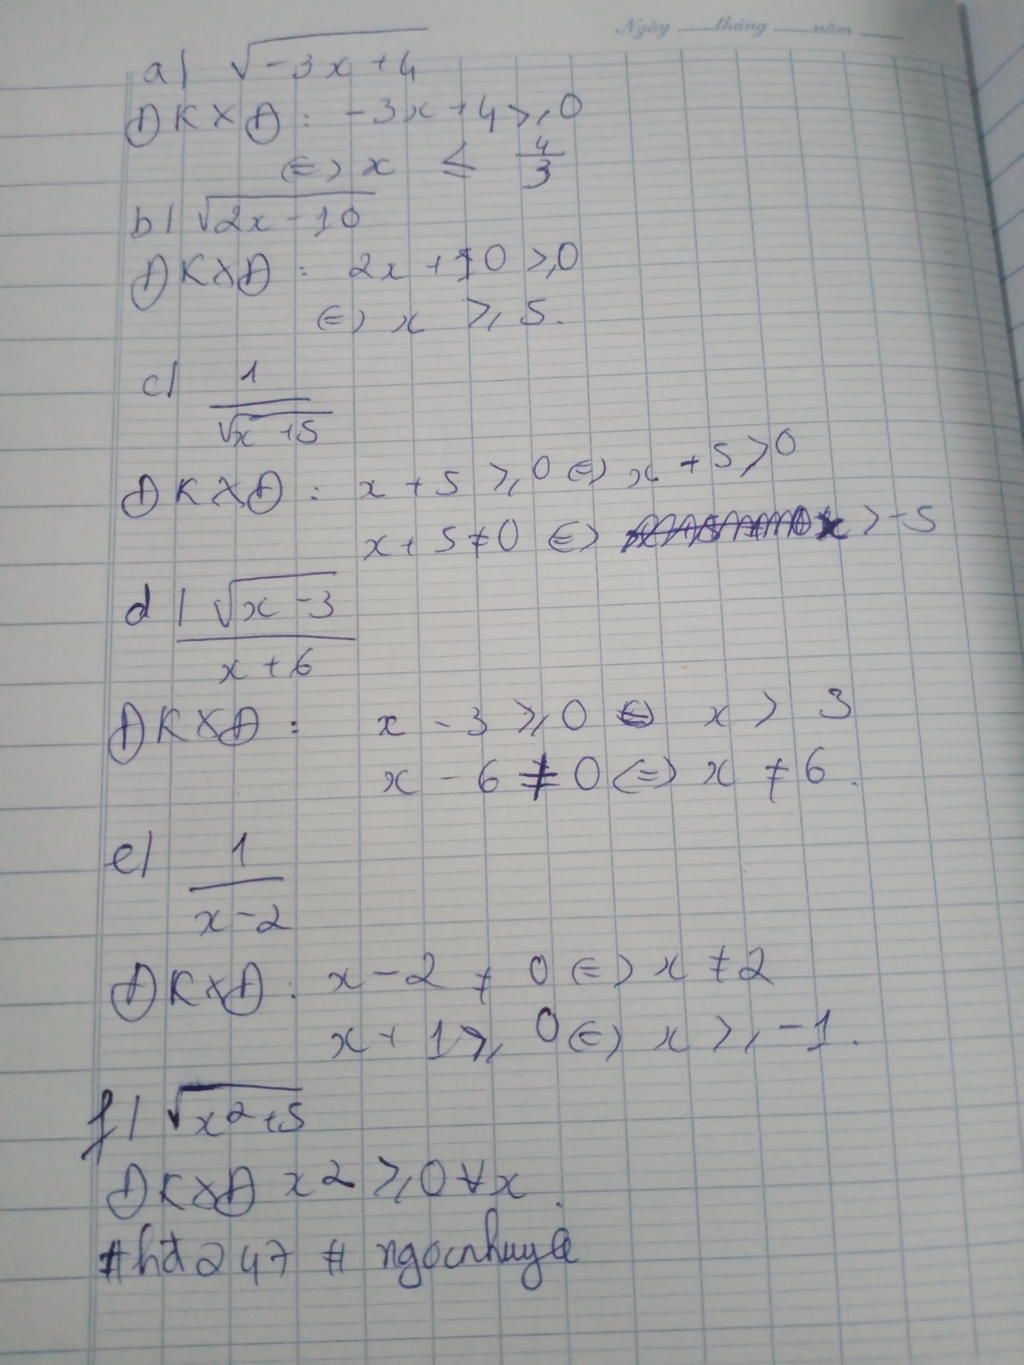 Ngày ........tháng ........năm ........
a) √(-3x+4)
ĐKXĐ: -3x+4 ≥ 0
⇔ x ≤ 4/3
b) √(2x-10)
ĐKXĐ: 2x+10 ≥ 0
⇔ x ≥ 5.
c) 1/√(x+5)
ĐKXĐ: x+5 ≥ 0 ⇔ x+5 > 0
x+5 ≠ 0 ⇔ x > -5
d) √(x-3)/(x+6)
ĐKXĐ: x-3 ≥ 0 ⇔ x > 3
x-6 ≠ 0 ⇔ x ≠ 6.
e) 1/(x-2)
ĐKXĐ: x-2 ≠ 0 ⇔ x ≠ 2
x+1 ≥ 0 ⇔ x ≥ -1.
f) √(x2+5)
ĐKXĐ x2 ≥ 0 ∀x.
#hđ247#